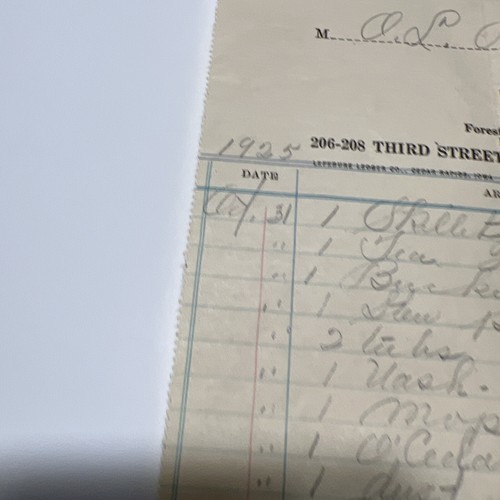 M. O. L.
Forest
1925 206-208 THIRD STREET
LEFEBURE LEDGER CO., CEDAR RAPIDS, IOWA
DATE AR
31 1 Skillet
" 1 Tea
" 1 Bucket
" 1 Stew
" 2 tubs
" 1 Wash
" 1 Mop
" 1 O'Ceda
" 1 dust